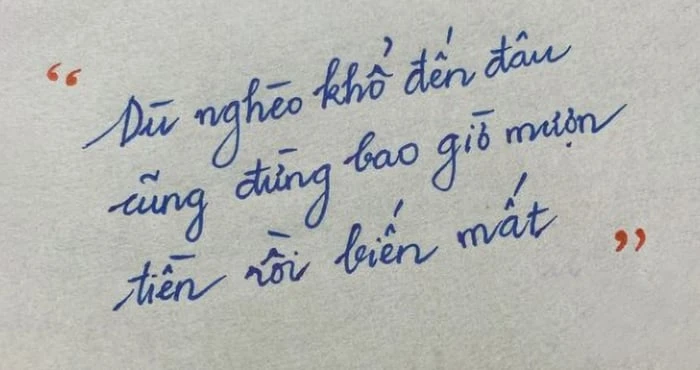 “ Dù nghèo khổ đến đâu
cũng đừng bao giờ mượn
tiền rồi biến mất ”